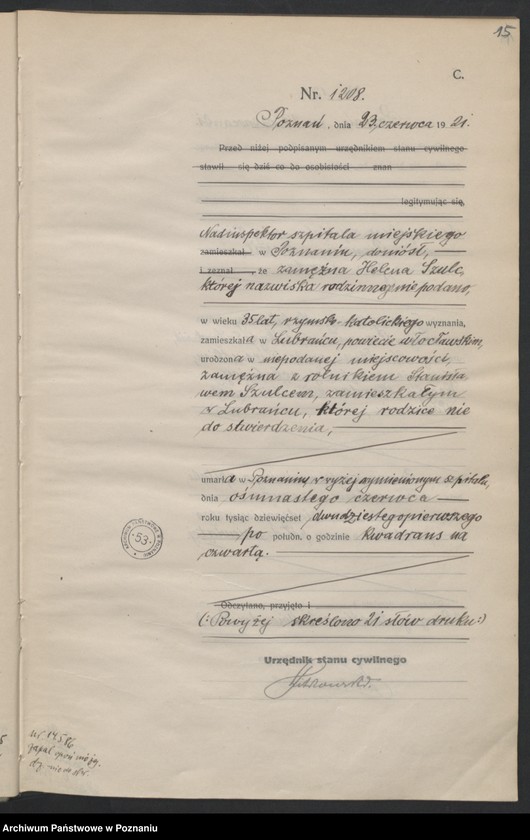 15
C.
Nr. 1208.
Poznań, dnia 23 czerwca 1921.
Przed niżej podpisanym urzędnikiem stanu cywilnego
stawił się dziś co do osobistości znan
legitymując się,
Nadinspektor szpitala miejskiego
zamieszkał w Poznaniu, doniósł,
i zeznał, że zamężna Helena Szulc,
której nazwiska rodzinnego nie podano,
w wieku 35 lat, rzymsko-katolickiego wyznania,
zamieszkała w Lubrańcu, powiecie włocławskim,
urodzona w niepodanej miejscowości,
zamężna z rolnikiem Stanisła
wem Szulcem, zamieszkałym
w Lubrańcu, której rodzice nie
do stwierdzenia,
umarła w Poznaniu, w wyżej wymienionym szpitalu,
dnia osmnastego czerwca
roku tysiąc dziewięćset dwudziestego pierwszego
po połudn. o godzinie kwadrans na
czwartą.
Odczytano, przyjęto i
(: Powyżej skreślono 21 słów druku :)
Urzędnik stanu cywilnego
53
Archiwum Państwowe w Poznaniu